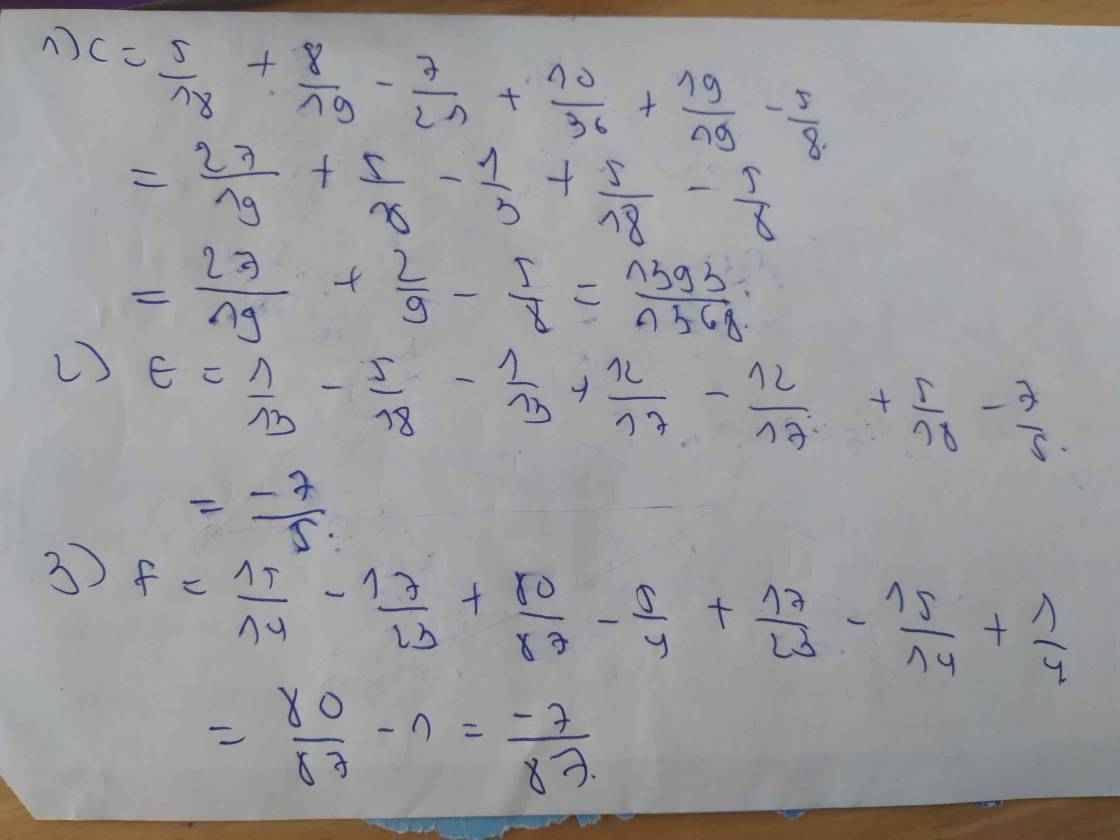 1) C = 5/18 + 8/19 - 7/21 + 10/36 + 19/19 - 5/8.
= 27/19 + 5/18 - 1/3 + 5/18 - 5/8
= 27/19 + 2/9 - 5/8 = 1393/1368.
2) E = 1/13 - 5/18 - 1/13 + 12/17 - 12/17. + 5/18 - 7/5.
= -7/5.
3) F = 15/14 - 17/23 + 80/87 - 5/4 + 17/23 - 15/14 + 1/4
= 80/87 - 1 = -7/87.